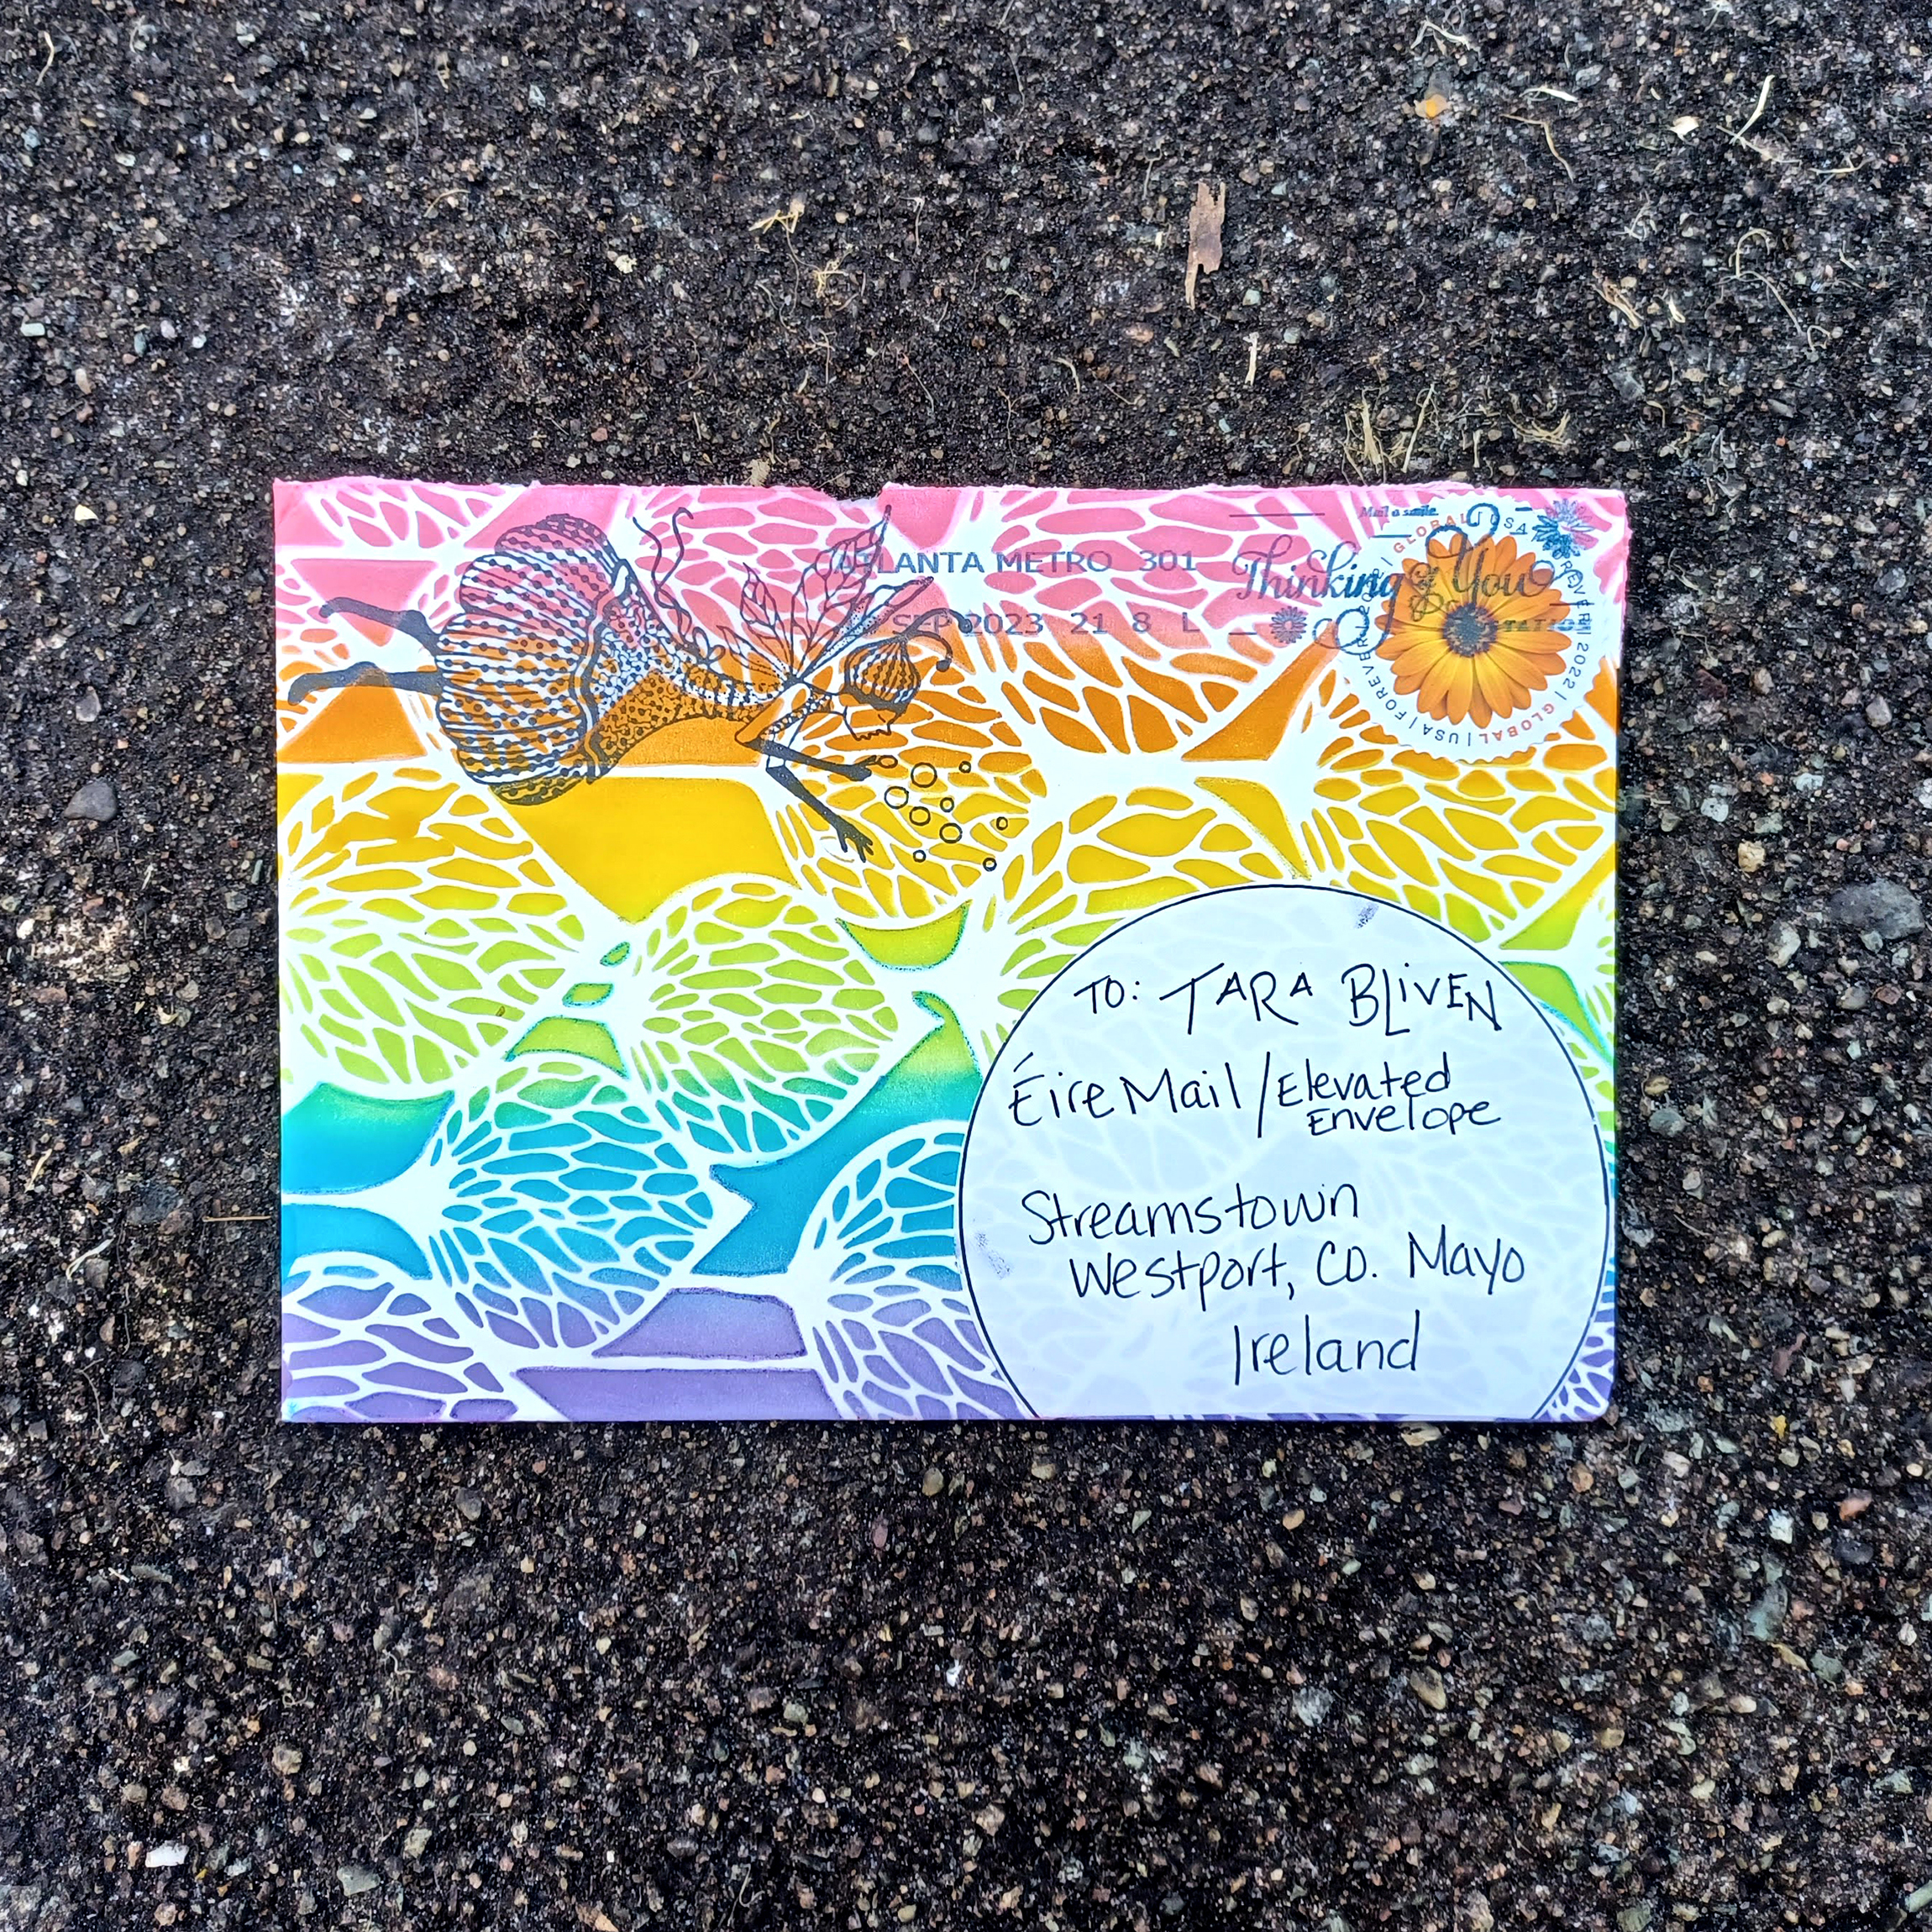 Mail a smile.
ATLANTA METRO 301
SEP 2023 21 8 L
Thinking of You
GLOBAL | USA | FOREVER | 2022 | GLOBAL | USA | FOREVER
TO: TARA BLiVEN
Éire Mail / Elevated
Envelope
Streamstown
Westport, Co. Mayo
Ireland